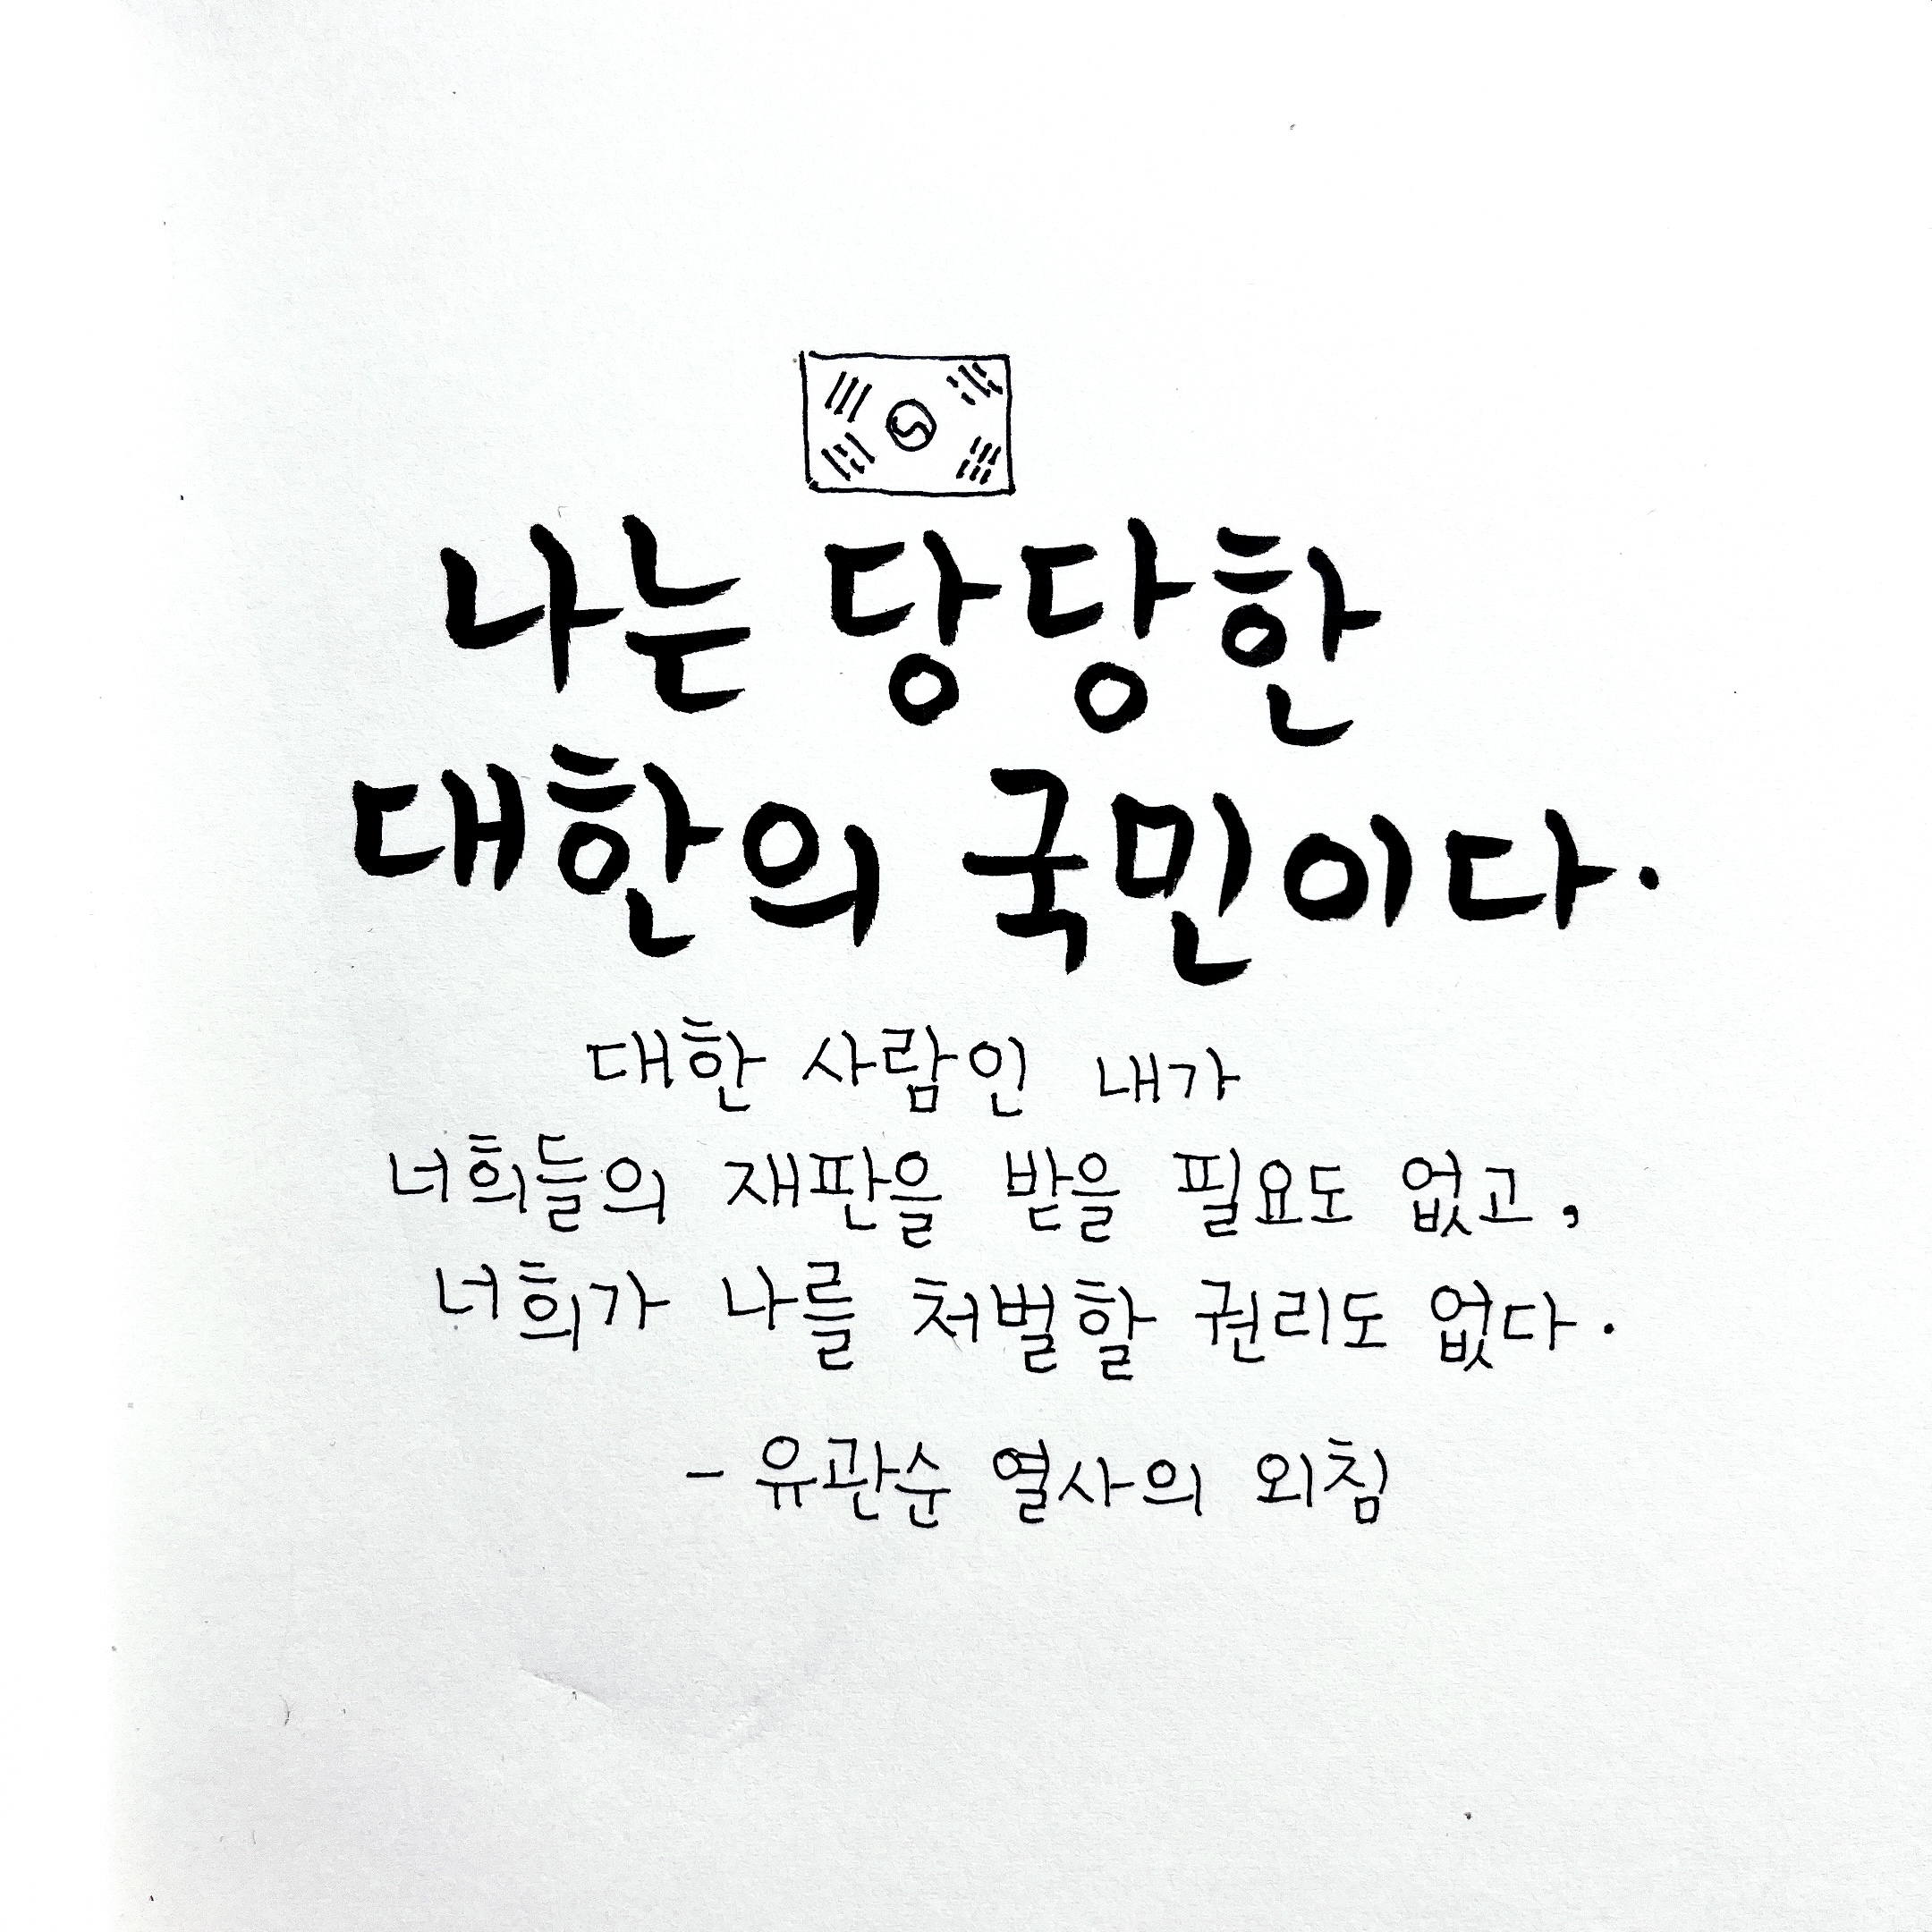 나는 당당한
대한의 국민이다.
대한 사람인 내가
너희들의 재판을 받을 필요도 없고,
너희가 나를 처벌할 권리도 없다.
- 유관순 열사의 외침